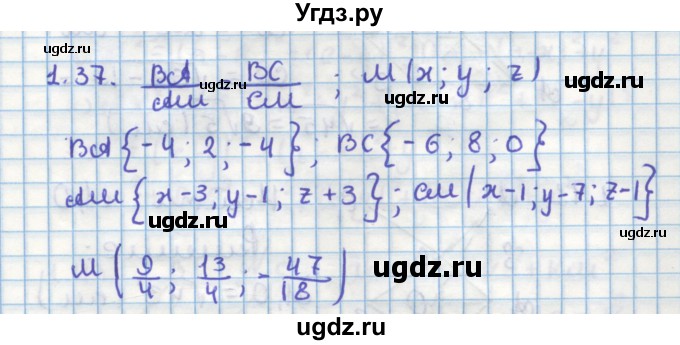 Угдз.ру
ugdz.ru ugdz.ru
1.37. BA/AM = BC/CM ; M(x; y; z)
ugdz.ru ugdz.ru
BA{-4; 2; -4}; BC{-6; 8; 0}
ugdz.ru
AM{x-3; y-1; z+3}; CM{x-1; y-7; z-1}
ugdz.ru ugdz.ru
M(9/4; 13/4; -47/18)
ugdz.ru
ugdz.ru
ugdz.ru